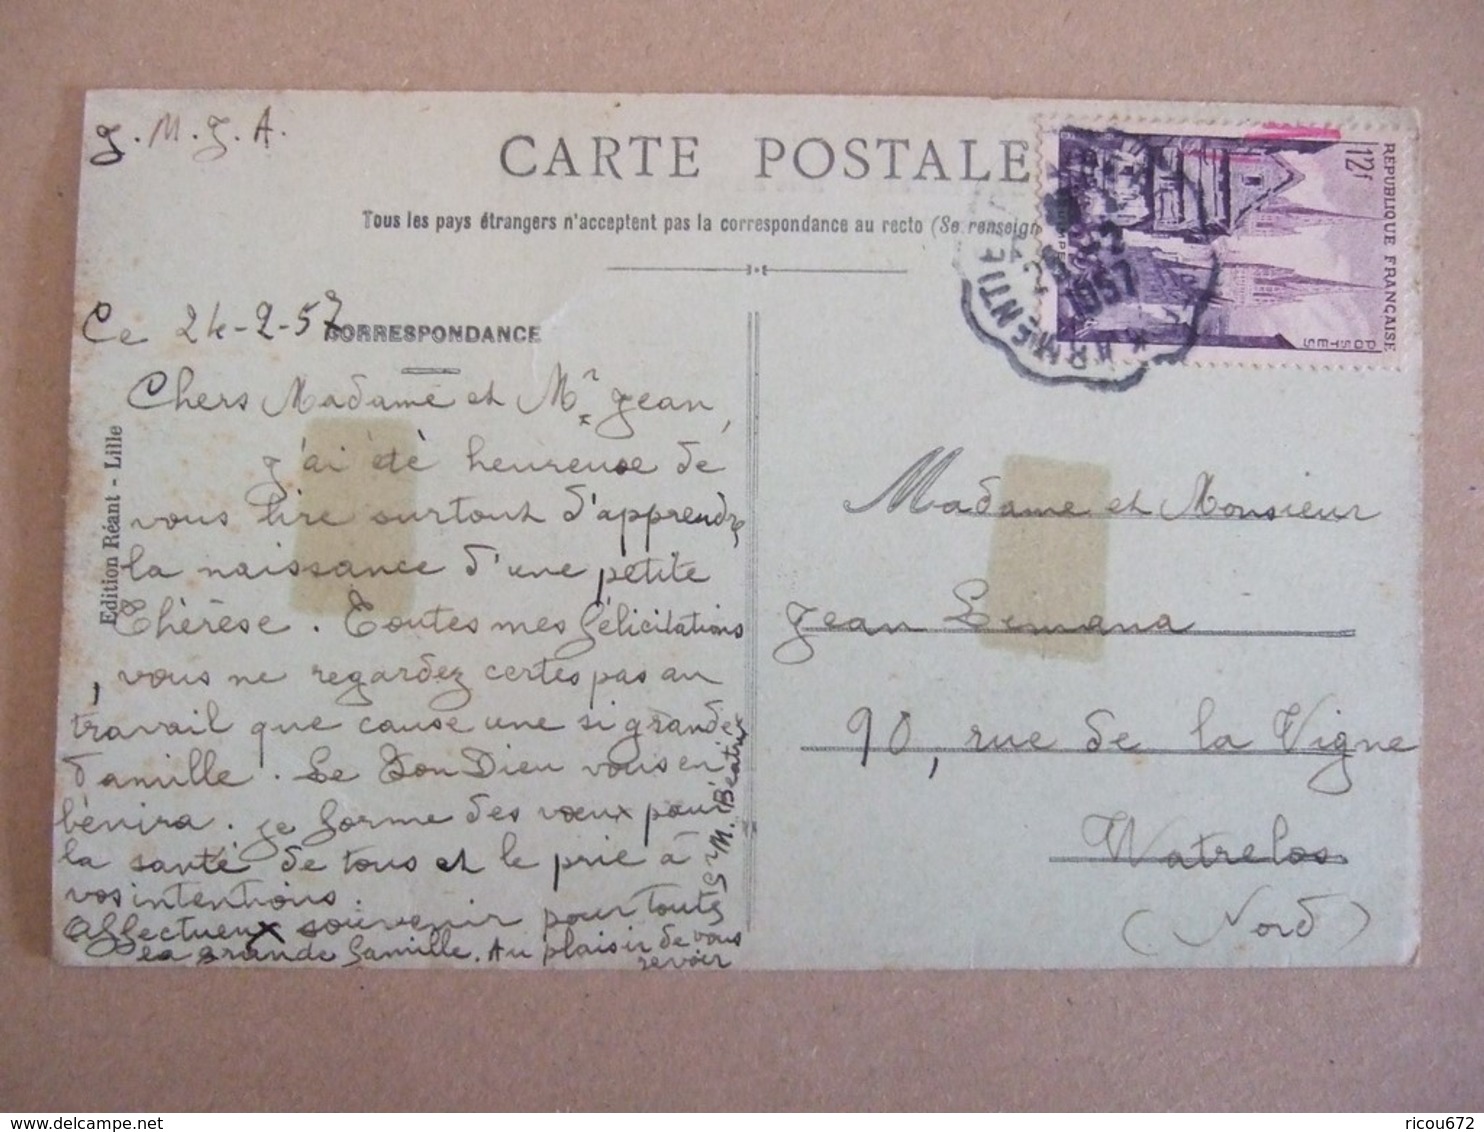 J. M. J. A.
CARTE POSTALE
Tous les pays étrangers n'acceptent pas la correspondance au recto (Se renseign
REPUBLIQUE FRANÇAISE
12f
POSTES
ARMENTIE
1957
Ce 24-2-57
CORRESPONDANCE
Chers Madame et Mr Jean,
j'ai été heureuse de
vous lire surtout d'apprendre
la naissance d'une petite
Thérèse. Toutes mes félicitations
, vous ne regardez certes pas au
travail que cause une si grande
famille. Le Bon Dieu vous en
bénira. je forme des vœux pour
la santé de tous et le prie à
vos intentions.
Affectueux souvenir pour toute
la grande famille. Au plaisir de vous
revoir
Sr M. Béatrix
Edition Réant - Lille
Madame et Monsieur
Jean Lemana
90, rue de la Vigne
Watrelos
(Nord)
delcampe.net
ricou672